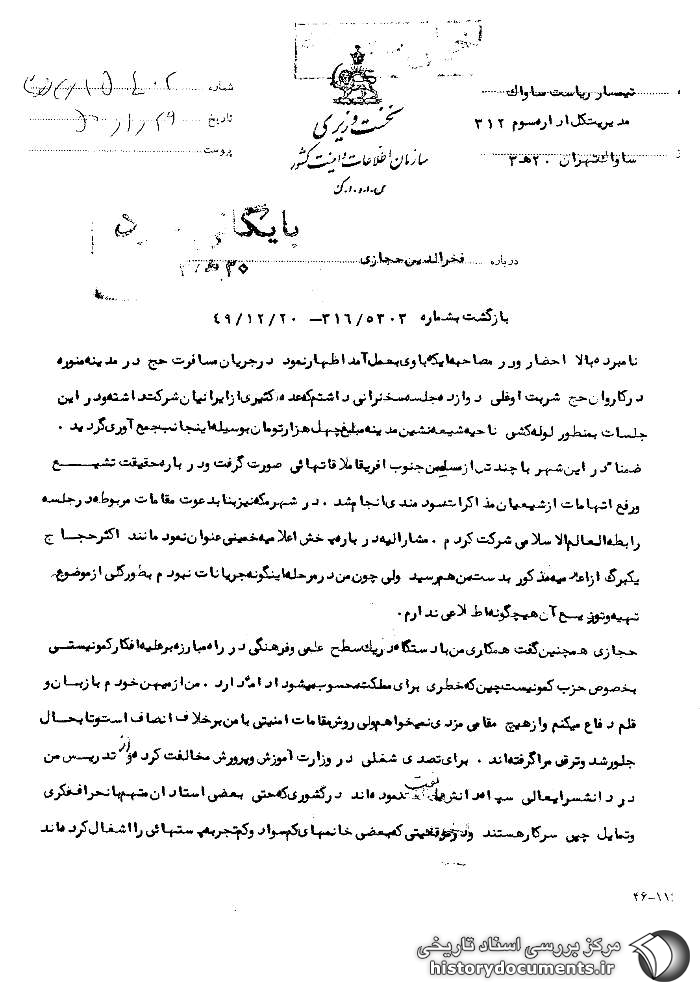 نخست وزیری
سازمان اطلاعات و امنیت کشور
س.ا.و.ا.ک
تیمسار ریاست ساواک
مدیریت کل اداره سوم ۳۱۲
ساواک تهران ۲۰ هـ ۳
شماره
تاریخ
پیوست
درباره فخرالدین حجازی
بازگشت بشماره ۳۱۶/۵۳۰۳ – ۴۹/۱۲/۲۰
نامبرده بالا احضار و در مصاحبه ایکه با وی بعمل آمد اظهار نمود درجریان مسافرت حج در مدینه منوره
در کاروان حج شربت اوغلی دوازده جلسه سخنرانی داشتم که عده کثیری از ایرانیان شرکت داشته و در این
جلسات بمنظور لوله کشی ناحیه شیعه نشین مدینه مبلغ چهل هزار تومان بوسیله اینجانب جمع آوری گردید .
ضمناً در این شهر با چند تن از مسلمین جنوب افریقا ملاقاتهائی صورت گرفت و در باره حقیقت تشیع
و رفع اتهامات از شیعیان مذاکرات سودمندی انجام شد . در شهر مکه نیز بنا بدعوت مقامات مربوطه در جلسه
رابطه العالم الاسلامی شرکت کردم . مشارالیه در باره پخش اعلامیه خمینی عنوان نمود مانند اکثر حجاج
یکبرگ از اعلامیه مذکور بدست من هم رسید ولی چون من در مرحله اینگونه جریانات نبودم بطور کلی از موضوع
تهیه و توزیع آن هیچگونه اطلاعی ندارم.
حجازی همچنین گفت همکاری من با دستگاه در یک سطح علمی و فرهنگی در راه مبارزه بر علیه افکار کمونیستی
بخصوص حزب کمونیست چین که خطری برای مملکت محسوب میشود ادامه دارد . من از میهن خودم با زبان و
قلم دفاع میکنم و از هیچ مقامی مزدی نمیخواهم ولی روش مقامات امنیتی با من برخلاف انصاف است و تا بحال
جلو رشد و ترقی مرا گرفته اند . برای تصدی شغلی در وزارت آموزش و پرورش مخالفت کرده و از تدریس من
در دانشسرایعالی سپاه دانش ممانعت نموده اند در کشوری که حتی بعضی استادان متهم بانحراف فکری
و تمایل چپی سر کار هستند و در موقعیتی که بعضی خانمهای کم سواد و کم تجربه پستهائی را اشغال کرده اند
مرکز بررسی اسناد تاریخی
historydocuments.ir